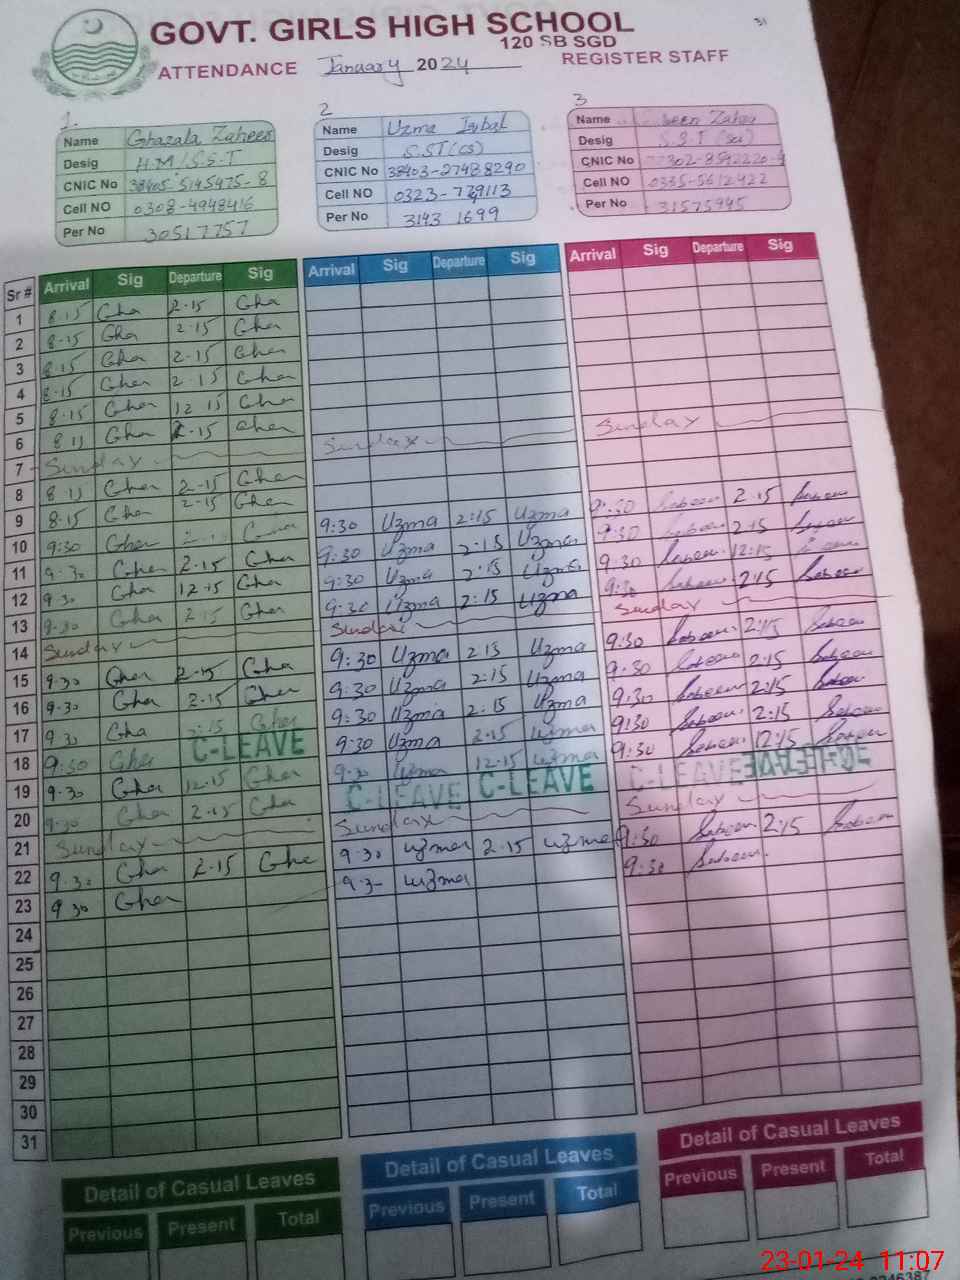 GOVT. GIRLS HIGH SCHOOL
120 SB SGD
ATTENDANCE January 2024 REGISTER STAFF
31
1.
Name Ghazala Zaheer
Desig H.M/S.S.T
CNIC No 38405-5145475-8
Cell NO 0308-4948416
Per No 30517757
2
Name Uzma Iqbal
Desig S.ST(CS)
CNIC No 38403-27488290
Cell NO 0323-
Per No 3143 1699
3
Name
Desig S.S.T (Sci)
CNIC No
Cell NO 0335-5612422
Per No 31575945
Sr # Arrival Sig Departure Sig Arrival Sig Departure Sig Arrival Sig Departure Sig
1 8-15 Gha 2-15 Gha
2 8-15 Gha 2-15 Gha
3 8-15 Gha 2-15 Gha
4 8-15 Gha 2-15 Gha
5 8-15 Gha 12-15 Gha
6 8-15 Gha 2-15 Gha Sunday Sunday
7 Sunday
8 8-15 Gha 2-15 Gha
9 8-15 Gha 2-15 Gha 9:30 Uzma 2:15 Uzma 9:30 Sabeen 2:15 Sabeen
10 9:30 Gha Gha 9:30 Uzma 2:15 Uzma 9:30 Sabeen 2:15 Sabeen
11 9-30 Gha 2-15 Gha 9:30 Uzma 2:15 Uzma 9:30 Sabeen 12:15
12 9-30 Gha 12-15 Gha 9:30 Uzma 2:15 Uzma 9:30 Sabeen 2:15 Sabeen
13 9-30 Gha 2-15 Gha Sunday Sunday
14 Sunday 9:30 Uzma 2:15 Uzma 9:30 Sabeen 2:15 Sabeen
15 9-30 Gha 2-15 Gha 9:30 Uzma 2:15 Uzma 9:30 Sabeen 2:15 Sabeen
16 9-30 Gha 2-15 Gha 9:30 Uzma 2:15 Uzma 9:30 Sabeen 2:15 Sabeen
17 9-30 Gha 2:15 Gha 9:30 Uzma 2-15 Uzma 9:30 Sabeen 2:15 Sabeen
C-LEAVE
18 9:30 Gha 9:30 Uzma 12-15 Uzma 9:30 Sabeen 12:15 Sabeen
19 9-30 Gha 12-15 Gha C-LEAVE C-LEAVE C-LEAVE
20 9-30 Gha 2-15 Gha Sunday Sunday
21 Sunday 9-30 Uzma 2-15 Uzma 9:30 Sabeen 2:15 Sabeen
22 9-30 Gha 2-15 Gha 9-30 Uzma 9:30 Sabeen
23 9 30 Gha
24
25
26
27
28
29
30
31
Detail of Casual Leaves Detail of Casual Leaves Detail of Casual Leaves
Previous Present Total Previous Present Total Previous Present Total
23-01-24 11:07